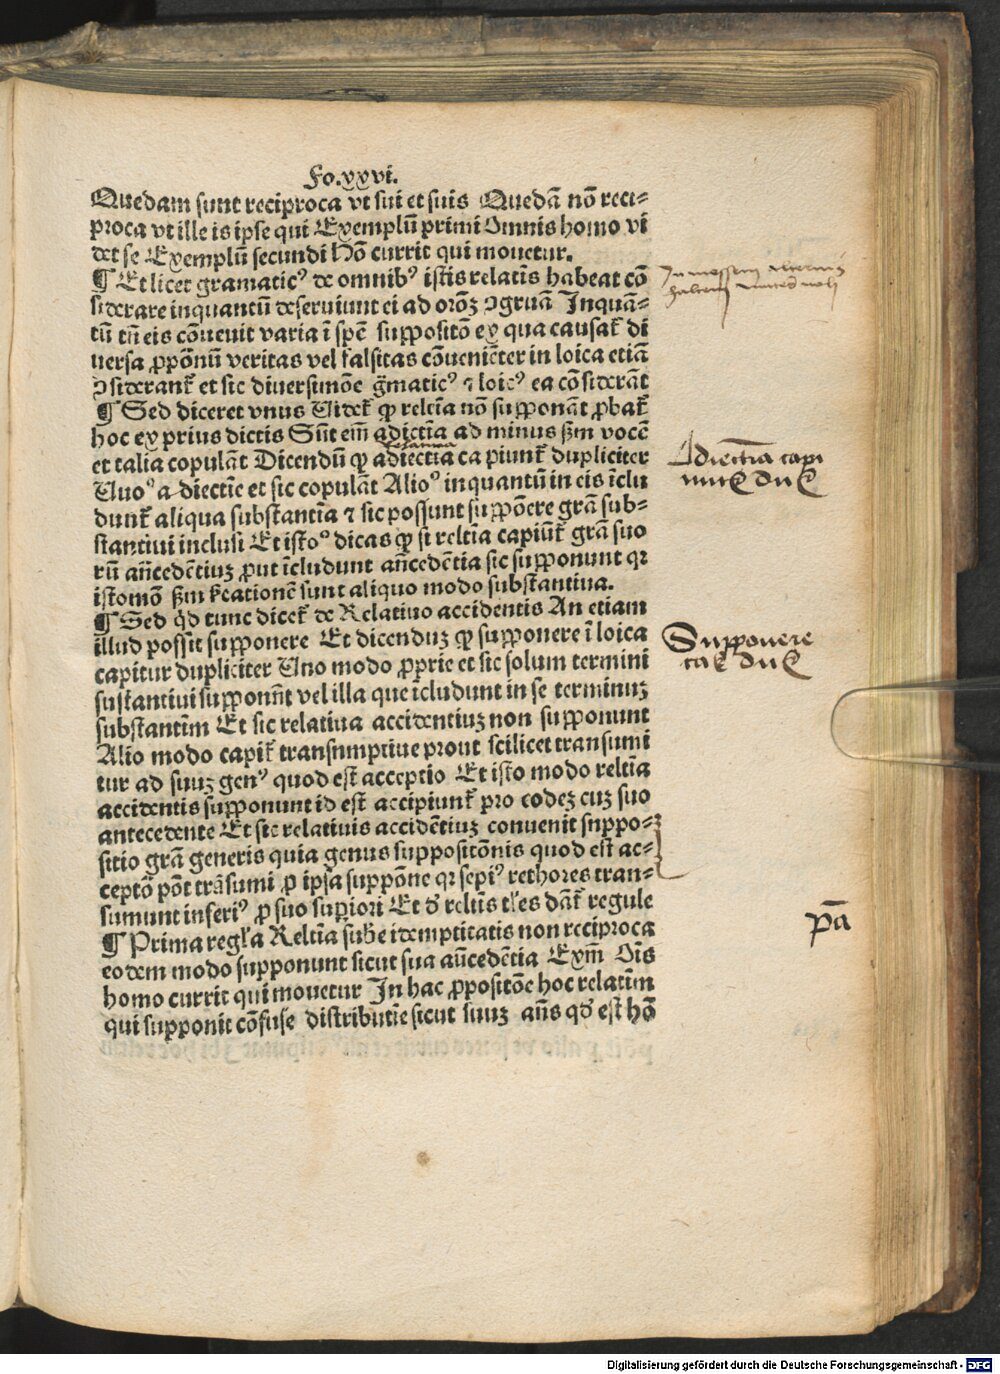 Fo.xxvi.
Quedam sunt reciproca vt sui et suis Quedā nō reci-
proca vt ille is ipse qui Exemplū primi Omnis homo vi
det se Exemplū secundi Hō currit qui mouetur.
¶ Et licet gramaticꝰ de omnibꝰ istis relatīs habeat cō
siderare inquantū deseruiunt ei ad orōꝫ ꝯgruā Inquā-
tū tñ eis cōuenit varia ī spē suppositō ex qua causat̄ di
uersa ꝓpōnū veritas vel falsitas cōueniēter in loica etiā
ꝯsiderant̄ et sic diuersimōe gͣmaticꝰ ⁊ loicꝰ ea cōsiderāt
¶ Sed diceret vnus Uidet̄ ꝙ reltīa nō supponāt ꝓbat̄
hoc ex prius dictis Sūt em̄ adictīa ad minus sm̄ vocē
et talia copulāt Dicendū ꝙ adiectīa capiunt̄ dupliciter
Unoꝰ adiectīe et sic copulāt Alioꝰ inquantū in eis īclu
dunt̄ aliqua substantīa ⁊ sic possunt suppōere grā sub-
stantiui inclusi Et istoꝰ dicas ꝙ si reltīa capiūt̄ grā suo
rū añcedentiuꝫ ꝓut īcludunt añcedētia sic supponunt qꝛ
istomō sm̄ ſ̄cationē sunt aliquo modo substantiua.
¶ Sed qͥd tunc dicet̄ de Relatiuo accidentis An etiam
illud possit supponere Et dicenduꝫ ꝙ supponere ī loica
capitur dupliciter Uno modo ꝓprie et sic solum termini
sustantiui supponūt vel illa que īcludunt in se terminuꝫ
substantīm Et sic relatiua accidentiuꝫ non supponunt
Alio modo capit̄ transnmptiue prout scilicet transumi
tur ad suuꝫ genꝰ quod est acceptio Et isto modo reltīa
accidentis supponunt id est accipiunt̄ pro eodeꝫ cuꝫ suo
antecedente Et sic relatiuis accidētiuꝫ conuenit snppo-
sitio grā generis quia genus suppositōnis quod est ac-
ceptō pōt trāsumi ꝓ ipsa suppōne qꝛ sepiꝰ rethores tran-
sumunt inferiꝰ ꝓ suo superiori Et ꝺ reltīs tles dāt̄ regule
¶ Prima regla Reltīa sube idemptitatis non reciproca
eodem modo supponunt sicut sua añcedētia Exm̄ Oīs
homo currit qui mouetur In hac ꝓpositōe hoc relatīm
qui supponit cōfuse distributīe sicut suuꝫ añs qꝺ est hō
Adiectīa capi
untꝭ duꝭ
Supponere
caꝭ duꝭ
pā
Digitalisierung gefördert durch die Deutsche Forschungsgemeinschaft - DFG